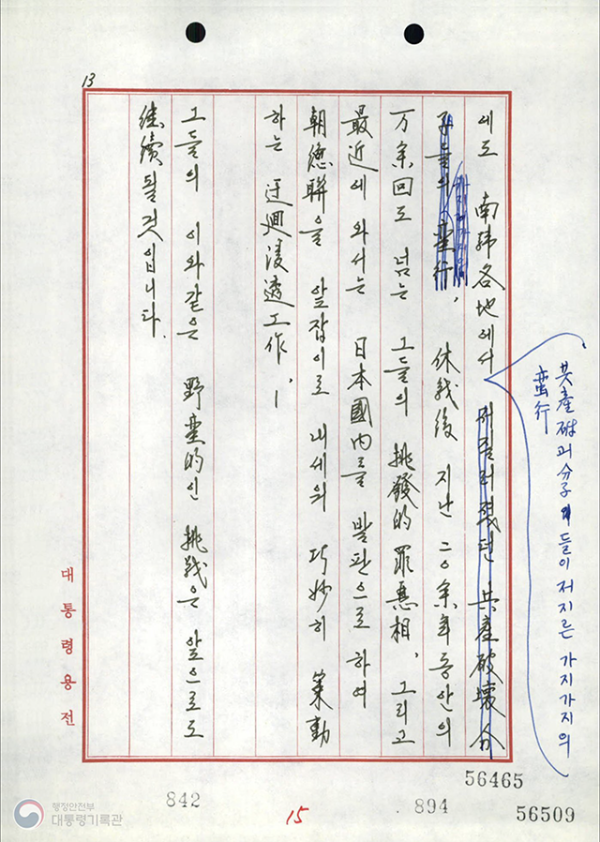 13
共産破괴分子들이 저지른 가지가지의
蛮行
에도 南韓各地에서 저질러졌던 共産破壞分
子들의 蛮行, 休戰後 지난 二0余年동안의
万余回도 넘는 그들의 挑發的罪惡相, 그리고
最近에 와서는 日本國內를 발판으로 하여
朝總聯을 앞잡이로 내세워 巧妙히 策動
하는 迂廻浸透工作,
그들의 이와같은 野蛮的인 挑戰은 앞으로도
継續될것입니다.
대통령용전
56465
842
894
15
56509
행정안전부
대통령기록관